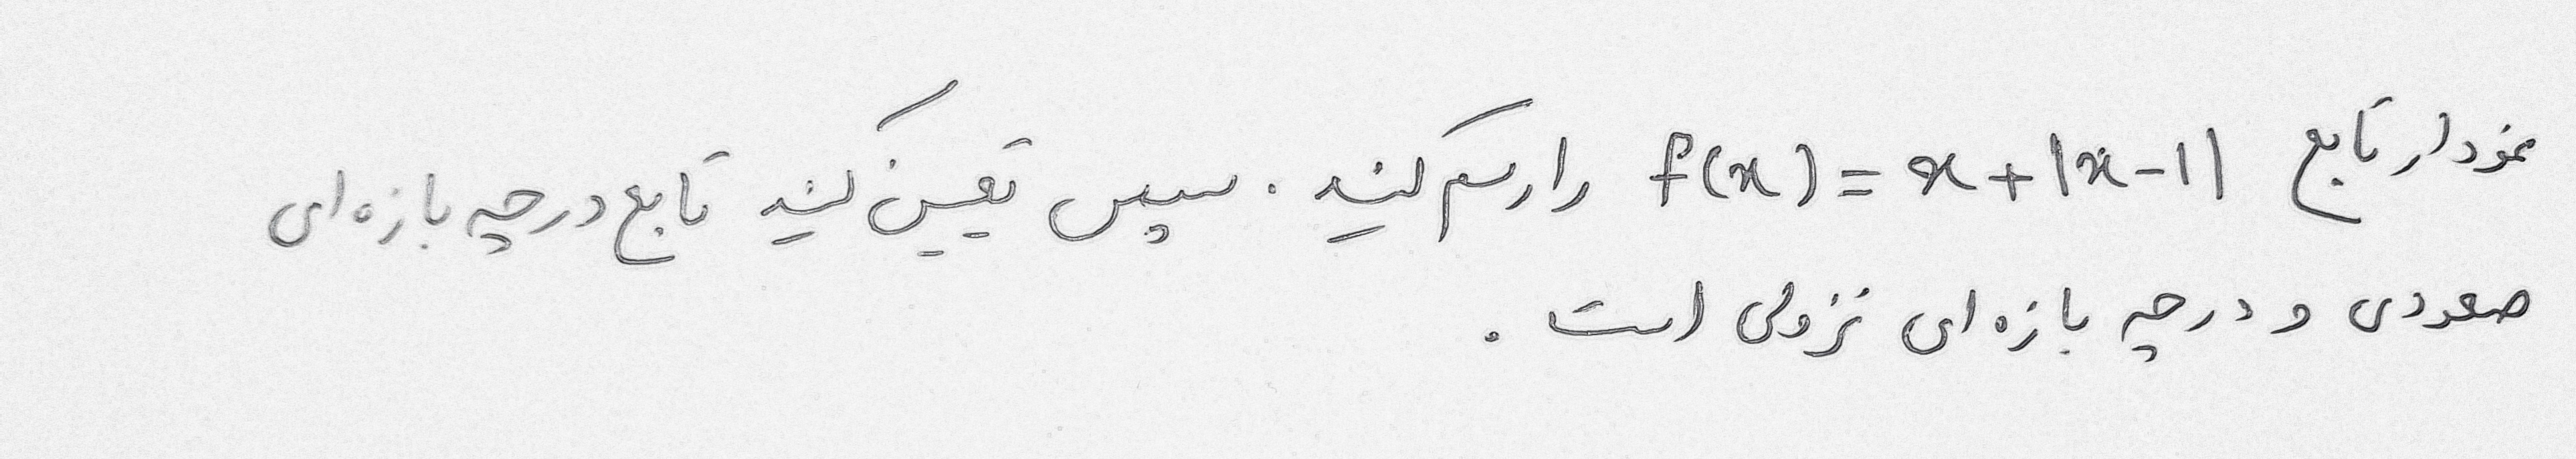 نمودار تابع f(x) = x + |x - 1| را رسم کنید. سپس تعیین کنید تابع در چه بازه‌ای
صعودی و در چه بازه‌ای نزولی است.